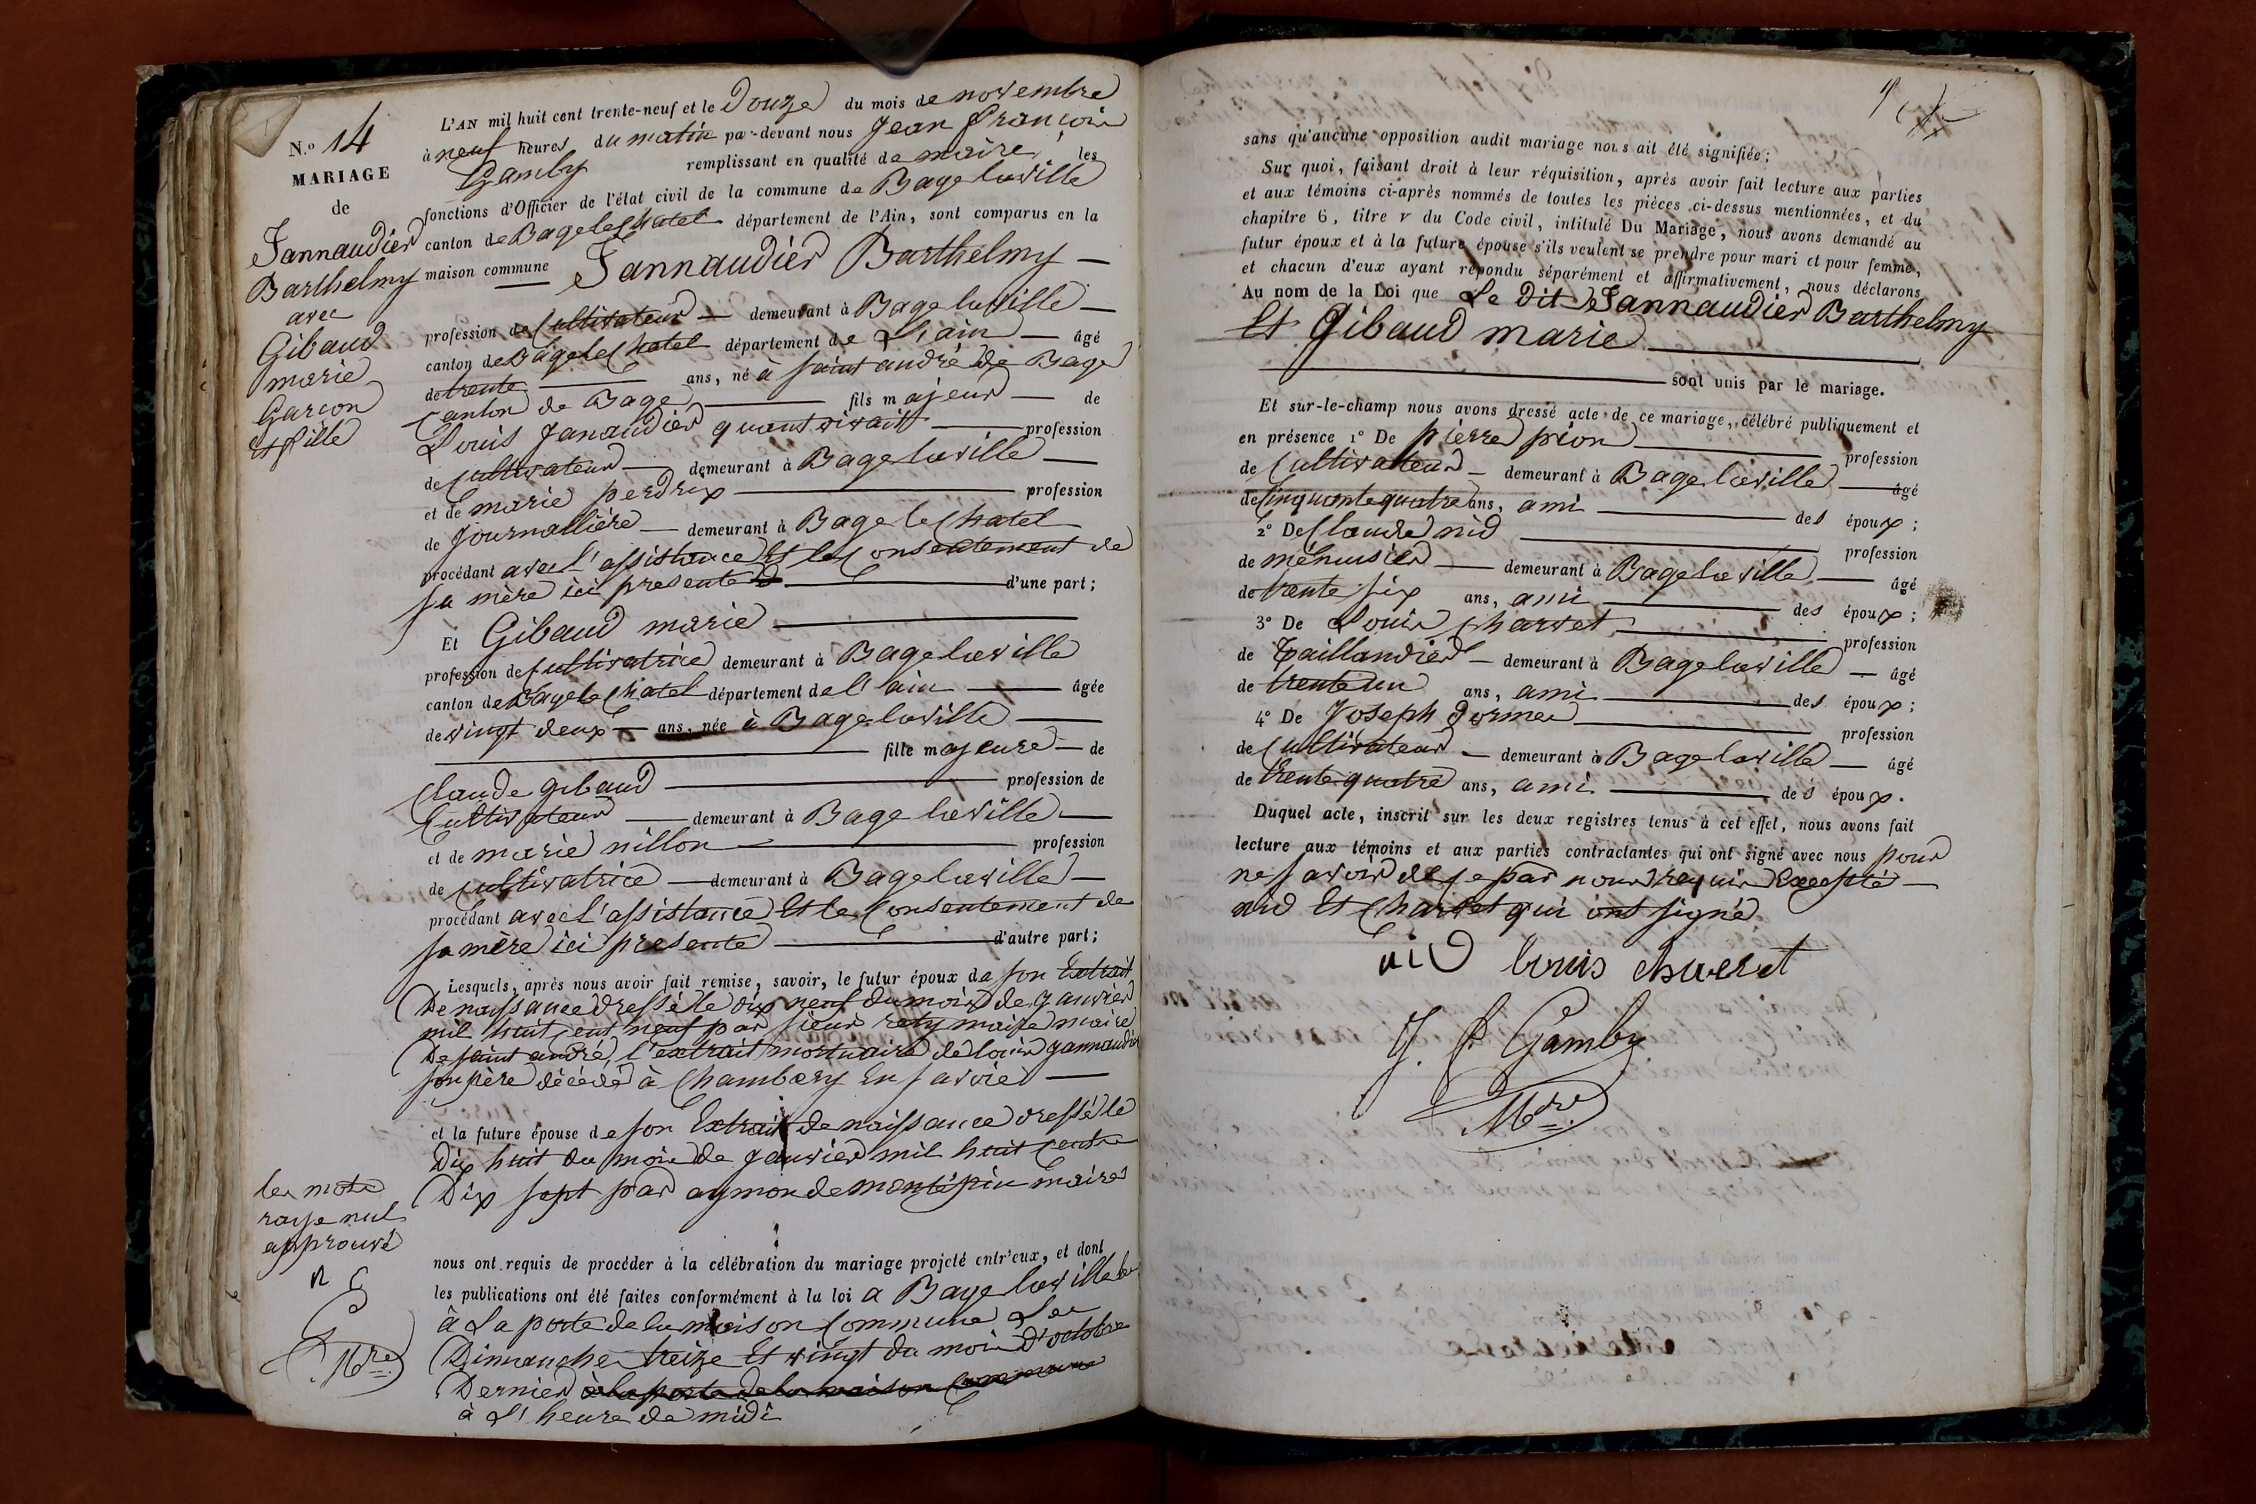 N.º 14
MARIAGE
de
Jannaudier
Barthelmy
avec
Gibaud
marie
Garcon
et fille
L'AN mil huit cent trente-neuf et le Douze du mois de novembre
à neuf heures du matin par-devant nous Jean françois
Gamby remplissant en qualité de maire les
fonctions d'Officier de l'état civil de la commune de Bage laville
canton de Bage le Chatel département de l'Ain, sont comparus en la
maison commune Jannaudier Barthelmy
profession de Cultivateur demeurant à Bage laville
canton de Bage le Chatel département de L'ain âgé
de trente ans, né à saint andré de Bage
Canton de Bage fils majeur de
Louis Janaudier quant vivait profession
de Cultivateur demeurant à Bage laville
et de marie perdrix profession
de Journallière demeurant à Bage le Chatel
procédant avec l'assistance Et le Consentement de
sa mère ici presente d'une part;
Et Gibaud marie
profession de Cultivatrice demeurant à Bage laville
canton de Bage le Chatel département de l'ain âgée
de vingt deux ans, née à Bage laville
fille majeure de
Claude gibaud profession de
Cultivateur demeurant à Bage laville
et de marie nillon profession
de Cultivatrice demeurant à Bage laville
procédant avec l'assistance Et le Consentement de
sa mère ici presente d'autre part;
Lesquels, après nous avoir fait remise, savoir, le futur époux de son Extrait
De naissance dressé le dix neuf du mois de Janvier
mil huit cent neuf par sieur maire
De saint andré, l'extrait mortuaire de louis Jannaudier
son père décédé à Chambery En savoie
et la future épouse de son Extrait de naissance dressé le
Dix huit du mois de Janvier mil huit cent
Dix sept par aymon de montépin maire
les mots
raye nul
approuvé
nous ont requis de procéder à la célébration du mariage projeté entr'eux, et dont
les publications ont été faites conformément à la loi a Bage laville
à La porte de la maison Commune Les
Dimanche treize Et vingt du mois D'octobre
Dernier à la porte de la maison Commune
à L'heure de midi
Mre
sans qu'aucune opposition audit mariage nous ait été signifiée;
Sur quoi, faisant droit à leur réquisition, après avoir fait lecture aux parties
et aux témoins ci-après nommés de toutes les pièces ci-dessus mentionnées, et du
chapitre 6, titre v du Code civil, intitulé Du Mariage, nous avons demandé au
futur époux et à la future épouse s'ils veulent se prendre pour mari et pour femme,
et chacun d'eux ayant répondu séparément et affirmativement, nous déclarons
Au nom de la Loi que Le Dit Jannaudier Barthelmy
Et Gibaud marie
sont unis par le mariage.
Et sur-le-champ nous avons dressé acte de ce mariage, célébré publiquement et
en présence 1º De pierre pion profession
de Cultivateur demeurant à Bage laville âgé
de Cinquante quatre ans, ami des époux;
2º De Claude nid profession
de ménusier demeurant à Bage laville âgé
de trente six ans, ami des époux;
3º De Louis Charvet profession
de Taillandier demeurant à Bage laville âgé
de trente un ans, ami des époux;
4º De Joseph profession
de Cultivateur demeurant à Bage laville âgé
de trente quatre ans, ami des époux.
Duquel acte, inscrit sur les deux registres tenus à cet effet, nous avons fait
lecture aux témoins et aux parties contractantes qui ont signé avec nous pour
ne savoir de ce par nous requis Excepté
nid Et Charvet qui ont signé
nid Louis charvet
J. f. Gamby
Mre